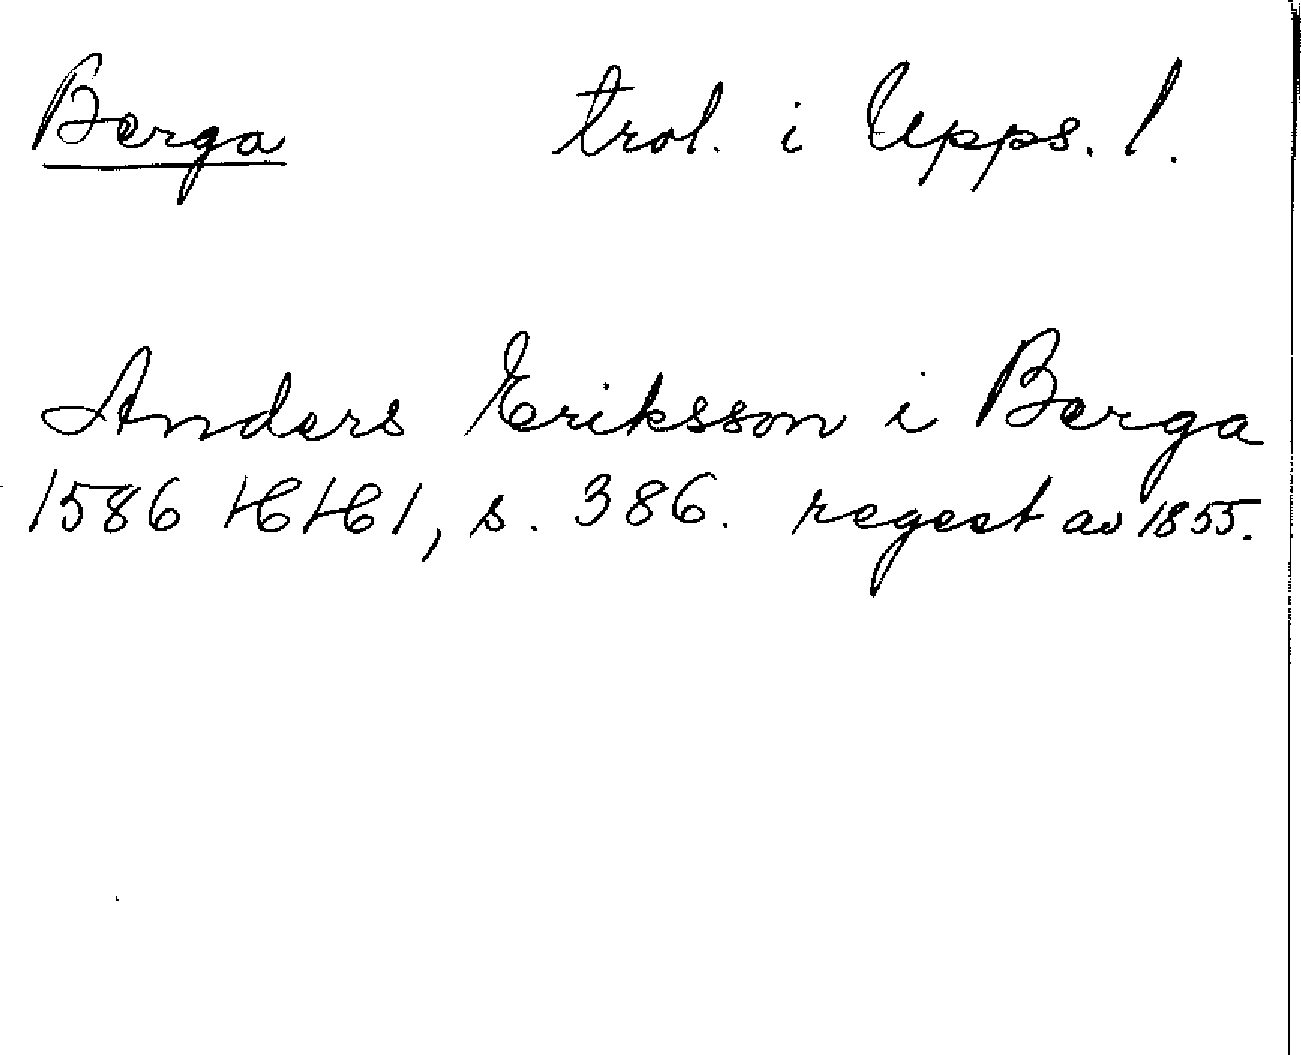 Berga trol. i Upps. l.
Anders Eriksson i Berga
1586 HH 1, s. 386. regest av 1855.